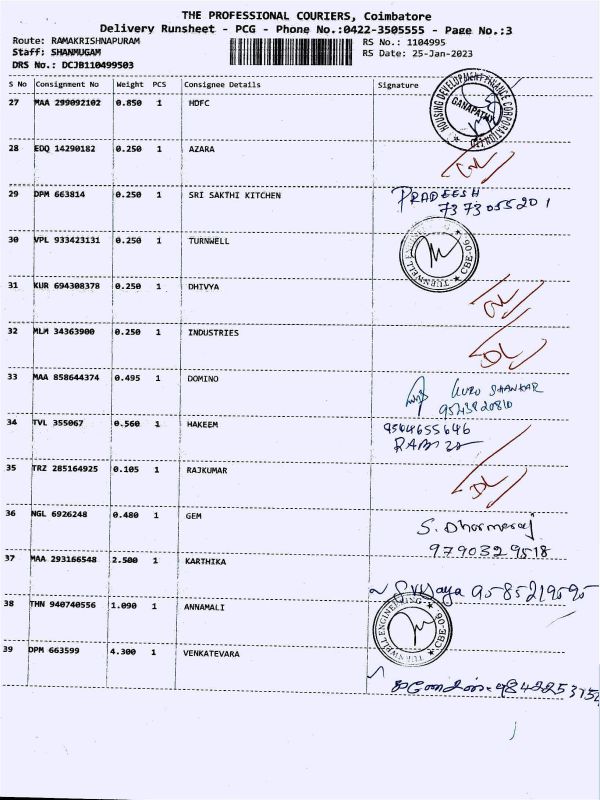 THE PROFESSIONAL COURIERS, Coimbatore
Delivery Runsheet - PCG - Phone No.:0422-3505555 - Page No.:3
Route: RAMAKRISHNAPURAM RS No.: 1104995
Staff: SHANMUGAM RS Date: 25-Jan-2023
DRS No.: DCJB110499503
S No Consignment No Weight PCS Consignee Details Signature
27 MAA 299092102 0.850 1 HDFC
HOUSING DEVELOPMENT FINANCE CORPORATION LIMITED
GANAPATHY
28 EDQ 14290182 0.250 1 AZARA
29 DPM 663814 0.250 1 SRI SAKTHI KITCHEN PRADEESH
7373055201
30 VPL 933423131 0.250 1 TURNWELL
TURNWELL ENGINEERING CBE-06
31 KUR 694308378 0.250 1 DHIVYA
32 MLM 34363900 0.250 1 INDUSTRIES DL
33 MAA 858644374 0.495 1 DOMINO GURU SHANKAR
34 TVL 355067 0.560 1 HAKEEM 9564655646
35 TRZ 285164925 0.105 1 RAJKUMAR DL
36 NGL 6926248 0.480 1 GEM S. Dharmaraj
9790329518
37 MAA 293166548 2.500 1 KARTHIKA
9585219595
38 THN 940740556 1.090 1 ANNAMALI
TURNWELL ENGINEERING CBE-06
39 DPM 663599 4.300 1 VENKATEVARA